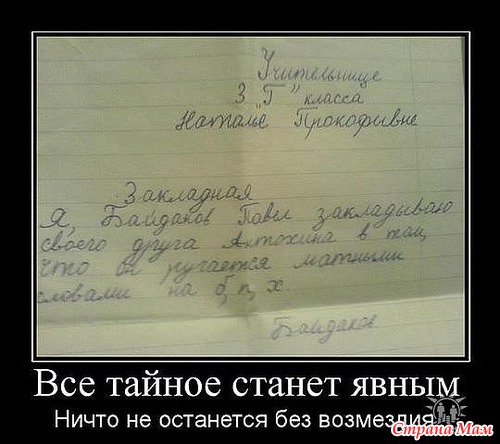 Учительнице
3 "Г" класса
Наталье Прокофивне
Закладная
Я, Байдаков Павел закладываю
своего друга Антохина в том,
что он ругается матными
словами на б, п, х.
Байдаков
Все тайное станет явным
Ничто не останется без возмездия
Страна Мам